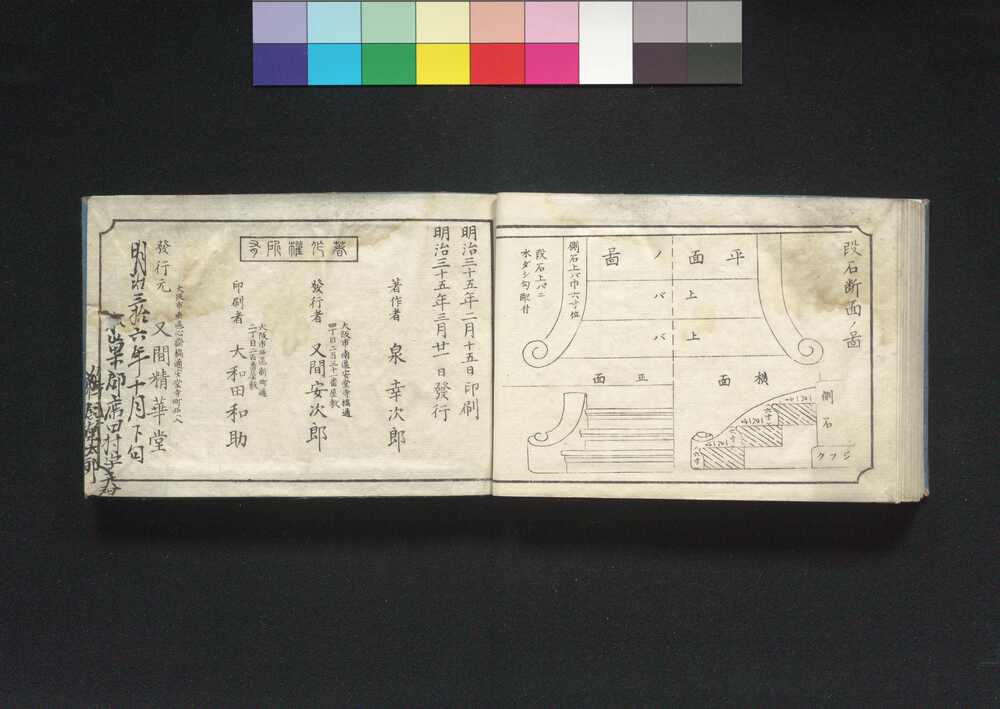 段石断面ノ啚
平面ノ啚
上バ
上バ
側石上バ巾六寸位
段石上バニ
水ダシ勾配付
横面
正面
側石
ジフク
明治三十五年二月十五日印刷
明治三十五年三月廿一日發行
著作者 泉幸次郎
大阪市南區安堂寺橋通
四丁目二百三十一番屋敷
發行者 又間安次郎
印刷者 大和田和助
著作權所有
大阪市南區心齋橋通安堂寺町北ヘ入
發行元 又間精華堂
明治三拾六年十月下旬